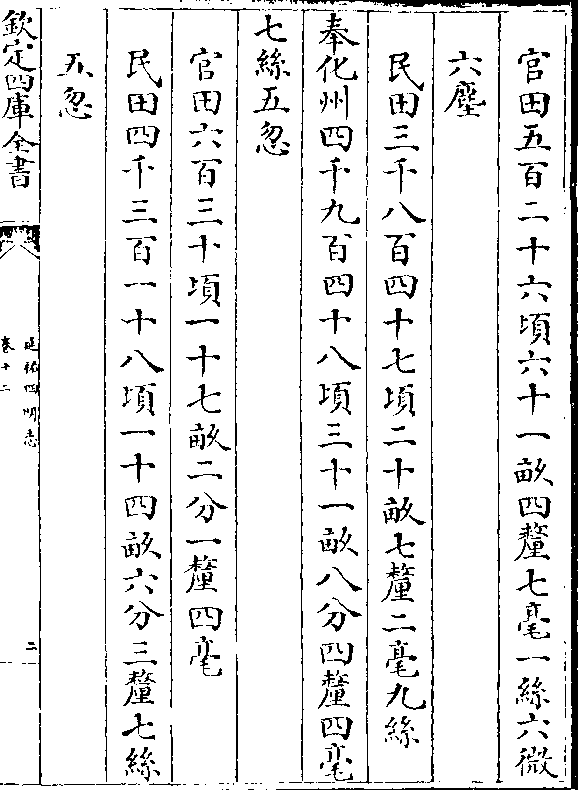 官田五百二十六頃六十一畝四釐七毫一絲六微
六塵
民田三千八百四十七頃二十畝七釐二毫九絲
奉化州四千九百四十八頃三十一畝八分四釐四毫
七絲五忽
官田六百三十頃一十七畝二分一釐四毫
民田四千三百一十八頃一十四畝六分三釐七絲
五忽
欽定四庫全書
延祐四明志
卷十二
二